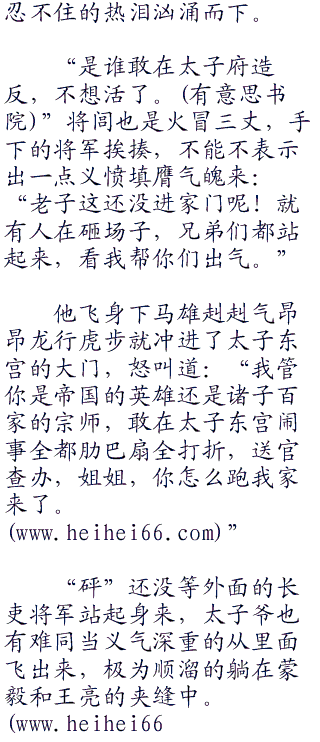 忍不住的热泪汹涌而下。
“是谁敢在太子府造
反，不想活了。(有意思书
院)”将闾也是火冒三丈，手
下的将军挨揍，不能不表示
出一点义愤填膺气魄来：
“老子这还没进家门呢！就
有人在砸场子，兄弟们都站
起来，看我帮你们出气。”
他飞身下马雄赳赳气昂
昂龙行虎步就冲进了太子东
宫的大门，怒叫道：“我管
你是帝国的英雄还是诸子百
家的宗师，敢在太子东宫闹
事全都肋巴扇全打折，送官
查办，姐姐，你怎么跑我家
来了。
(www.heihei66.com)”
“砰”还没等外面的长
吏将军站起身来，太子爷也
有难同当义气深重的从里面
飞出来，极为顺溜的躺在蒙
毅和王亮的夹缝中。
(www.heihei66